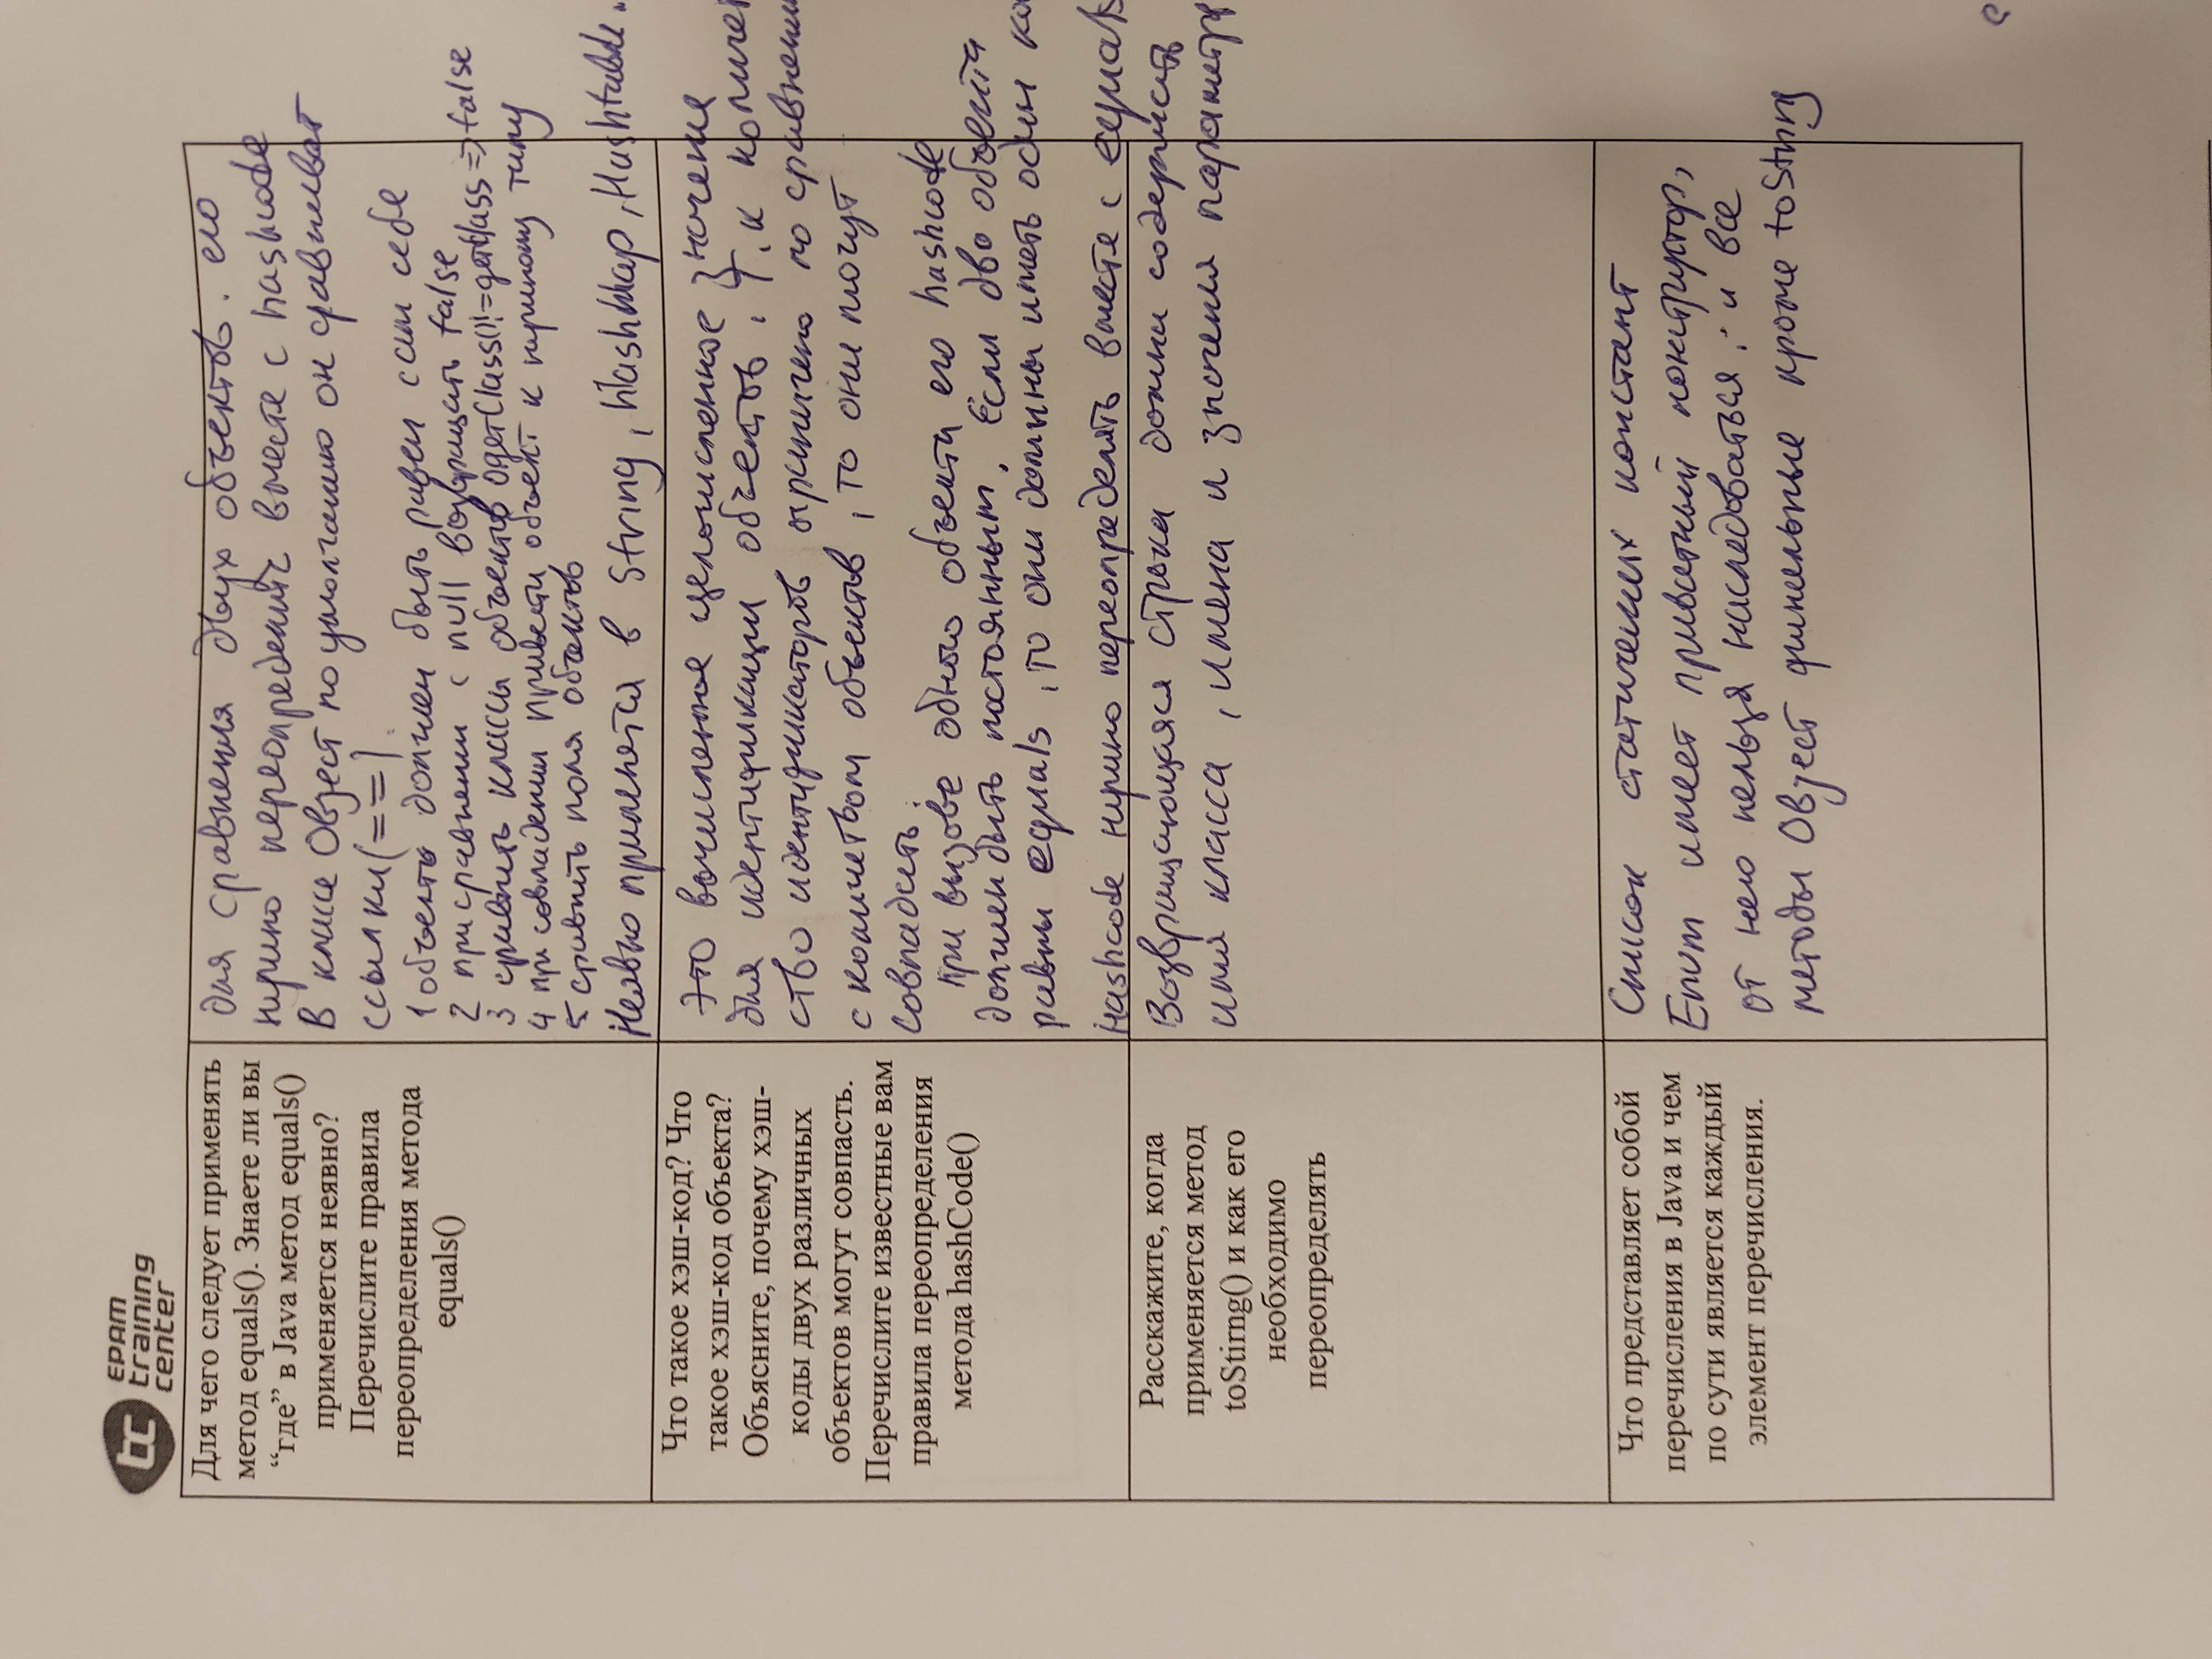 EPAM
training
center
Для чего следует применять
метод equals(). Знаете ли вы
“где” в Java метод equals()
применяется неявно?
Перечислите правила
переопределения метода
equals()
для сравнения двух объектов. его
нужно переопределить вместе с hashcode
В классе Object по умолчанию он сравниват
ссылки(==).
1 объект должен быть равен сам себе
2 при сравнении с null возвращать false
3 сравнить классы объектов o.getClass()!=getClass => false
4 при совпадении привести объект к нужному типу
5 сравнить поля объектов
Неявно применяется в String, HashMap, Hashtable..
Что такое хэш-код? Что
такое хэш-код объекта?
Объясните, почему хэш-
коды двух различных
объектов могут совпасть.
Перечислите известные вам
правила переопределения
метода hashCode()
Это вычисленное целочисленное значение
для идентификации объектов. Т.к количес
ство идентификаторов ограничено по сравнению
с количеством объектов, то они могут
совпадать.
при вызове одного объекта его hashcode
должен быть постоянным. Если два объекта
равны equals, то они должны иметь один ко
Hashcode нужно переопределять вместе с equals
Расскажите, когда
применяется метод
toStirng() и как его
необходимо
переопределять
Возвращающаяся строка должна содержать
имя класса, имена и значения параметров
Что представляет собой
перечисления в Java и чем
по сути является каждый
элемент перечисления.
Список статических констант
Enum имеет приватный конструктор,
от него нельзя наследоваться. и все
методы Object финальные кроме toString